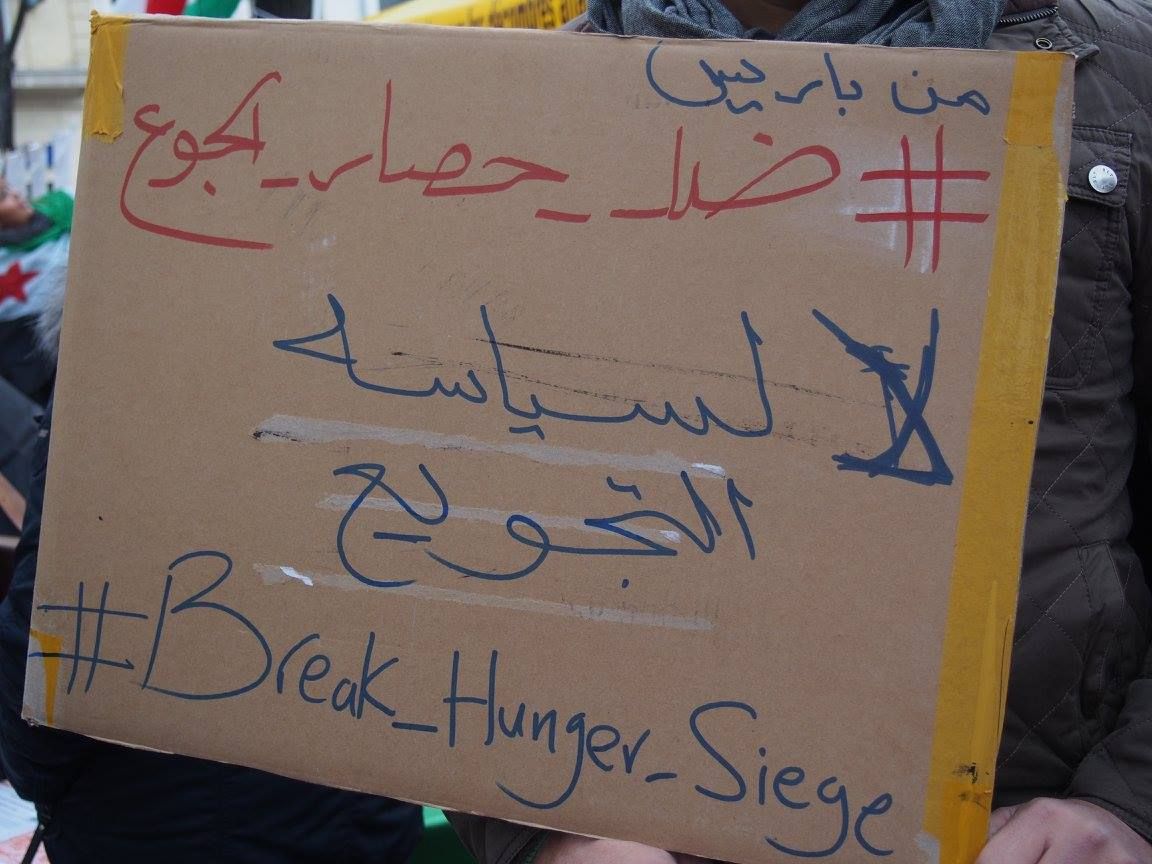 من باريس
#ضد_حصار_الجوع
لا لسياسه
التجويع
#Break_Hunger_Siege